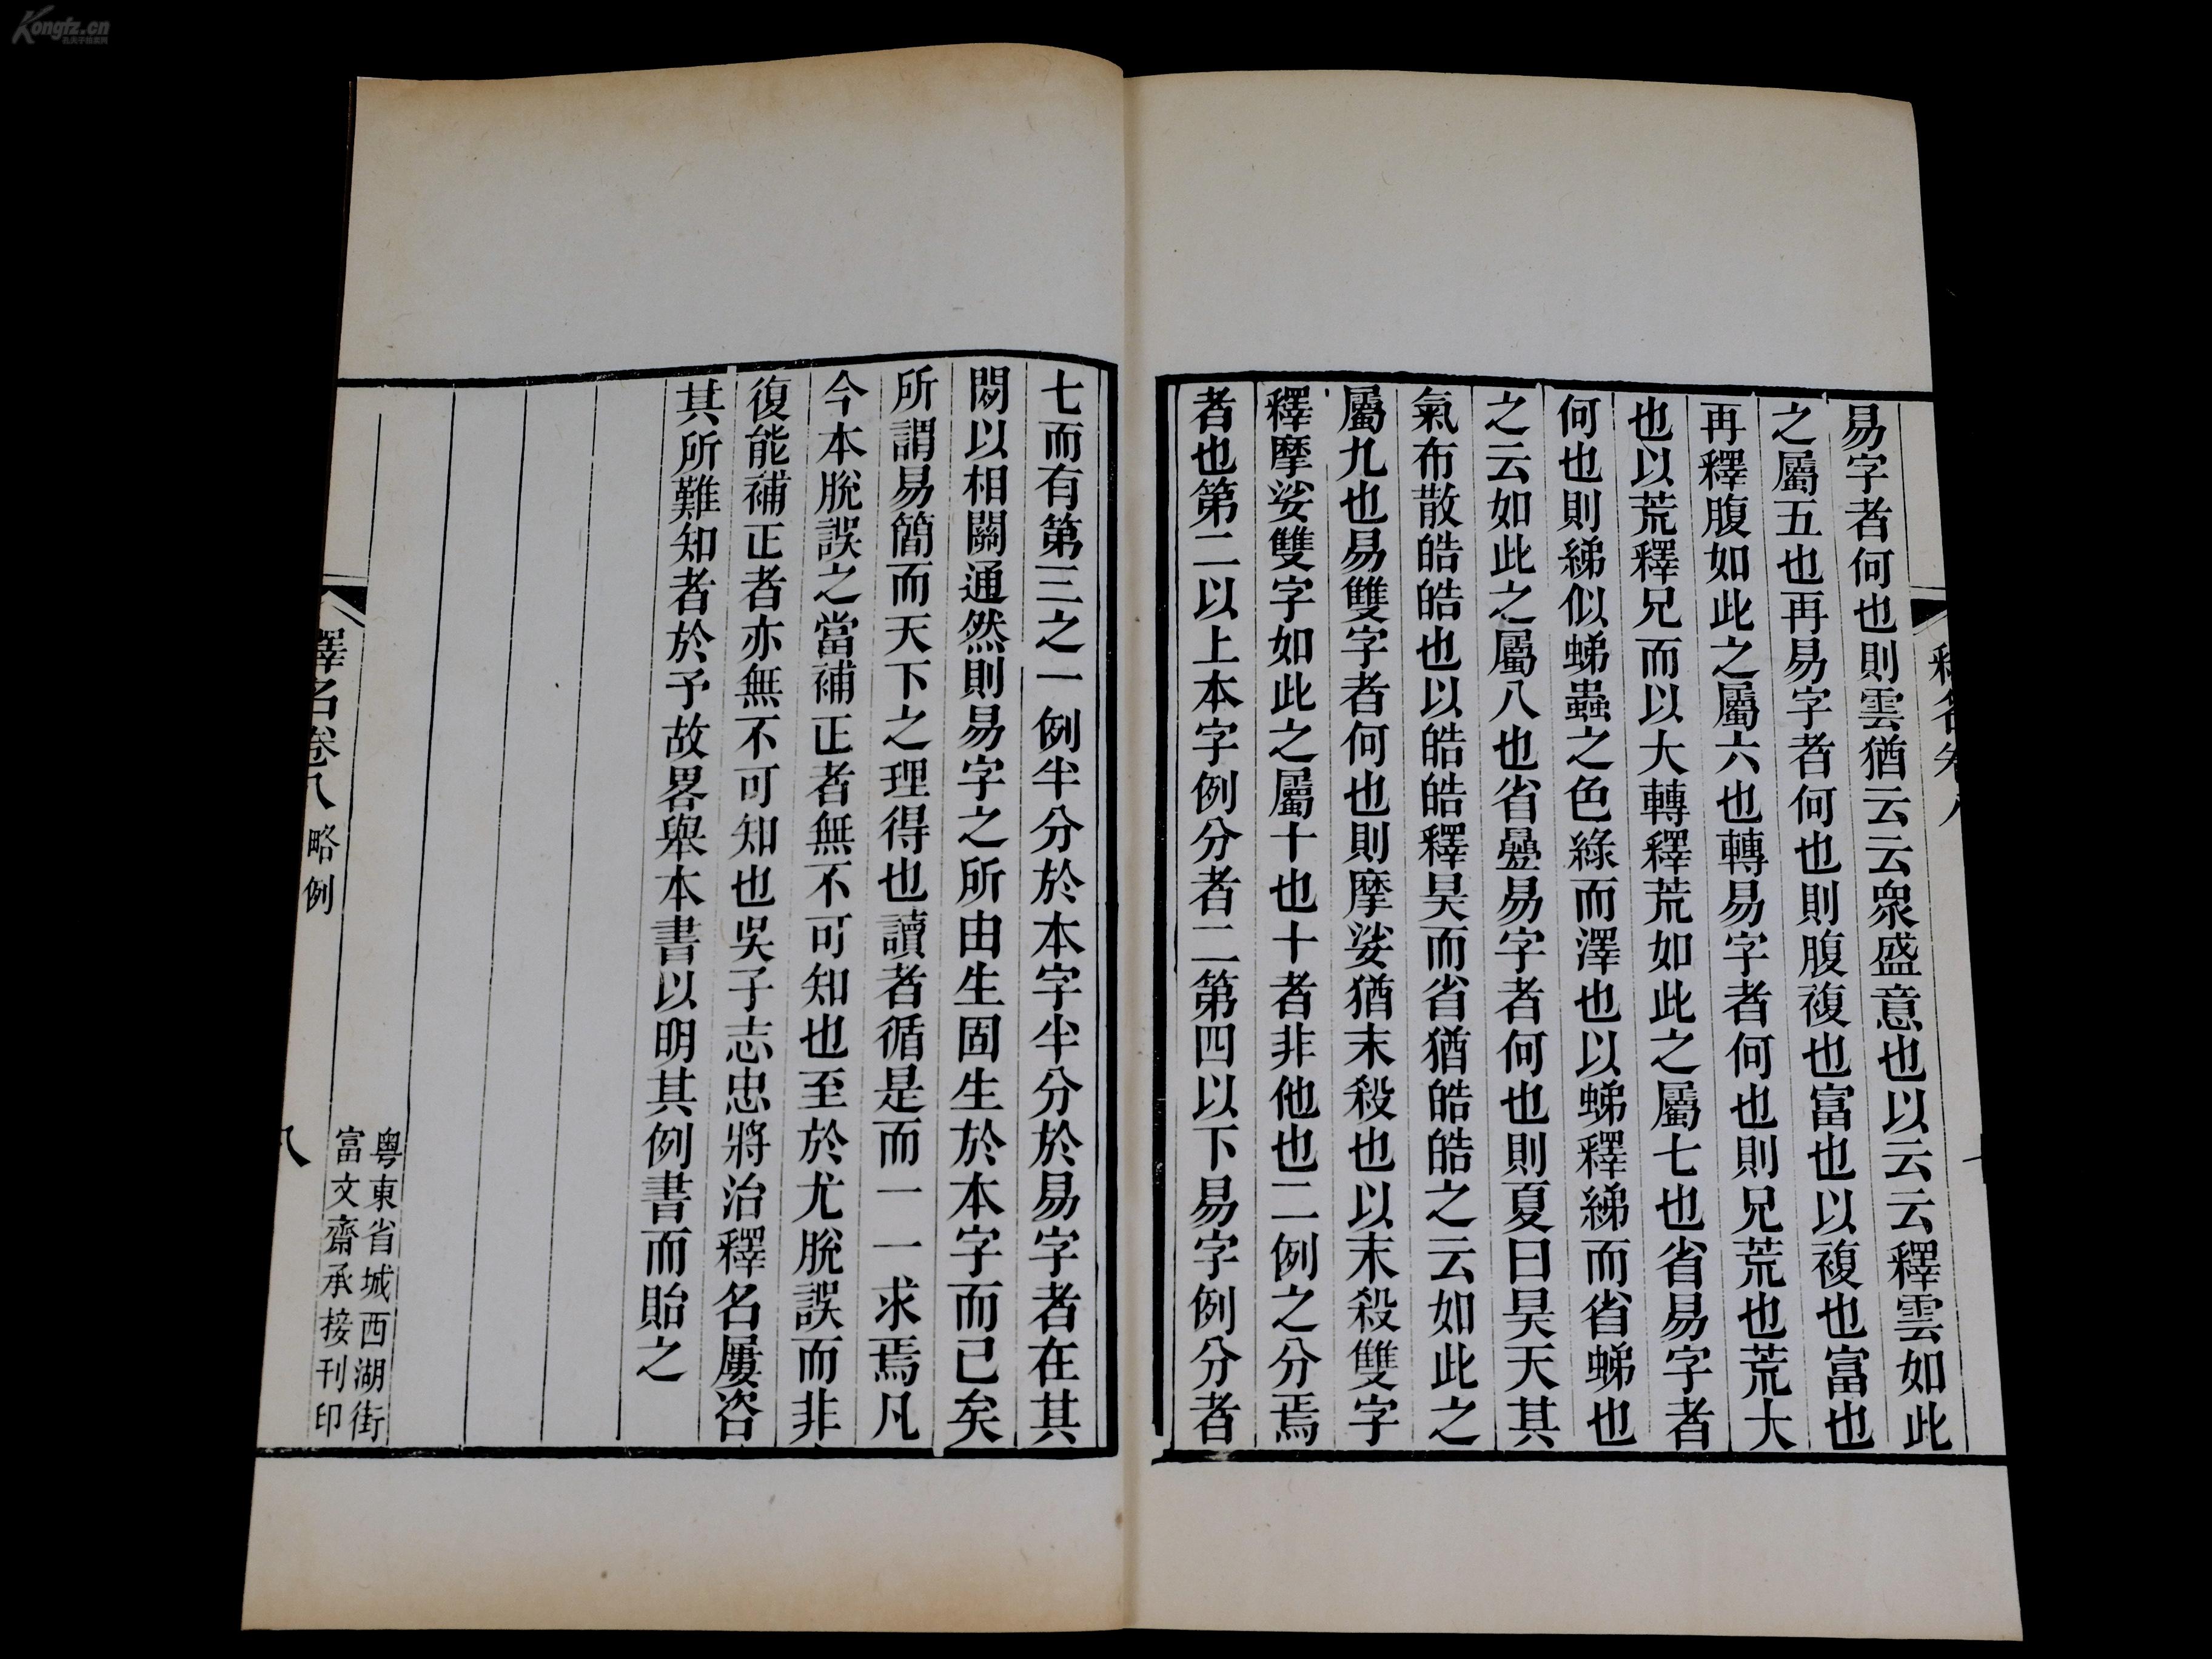 易字者何也則雲猶云云衆盛意也以云云釋雲如此
之屬五也再易字者何也則腹複也富也以複也富也
再釋腹如此之屬六也轉易字者何也則兄荒也荒大
也以荒釋兄而以大轉釋荒如此之屬七也省易字者
何也則綈似蝭蟲之色綠而澤也以蝭釋綈而省蝭也
之云如此之屬八也省疊易字者何也則夏曰昊天其
氣布散皓皓也以皓皓釋昊而省猶皓皓之云如此之
屬九也易雙字者何也則摩娑猶末殺也以末殺雙字
釋摩娑雙字如此之屬十也十者非他也二例之分焉
者也第二以上本字例分者二第四以下易字例分者
七而有第三之一例半分於本字半分於易字者在其
閒以相關通然則易字之所由生固生於本字而已矣
所謂易簡而天下之理得也讀者循是而一一求焉凡
今本脫誤之當補正者無不可知也至於尤脫誤而非
復能補正者亦無不可知也吳子志忠將治釋名屢咨
其所難知者於予故畧舉本書以明其例書而貽之
釋名卷八 略例
八
粵東省城西湖街
富文齋承接刊印
Kongfz.cn